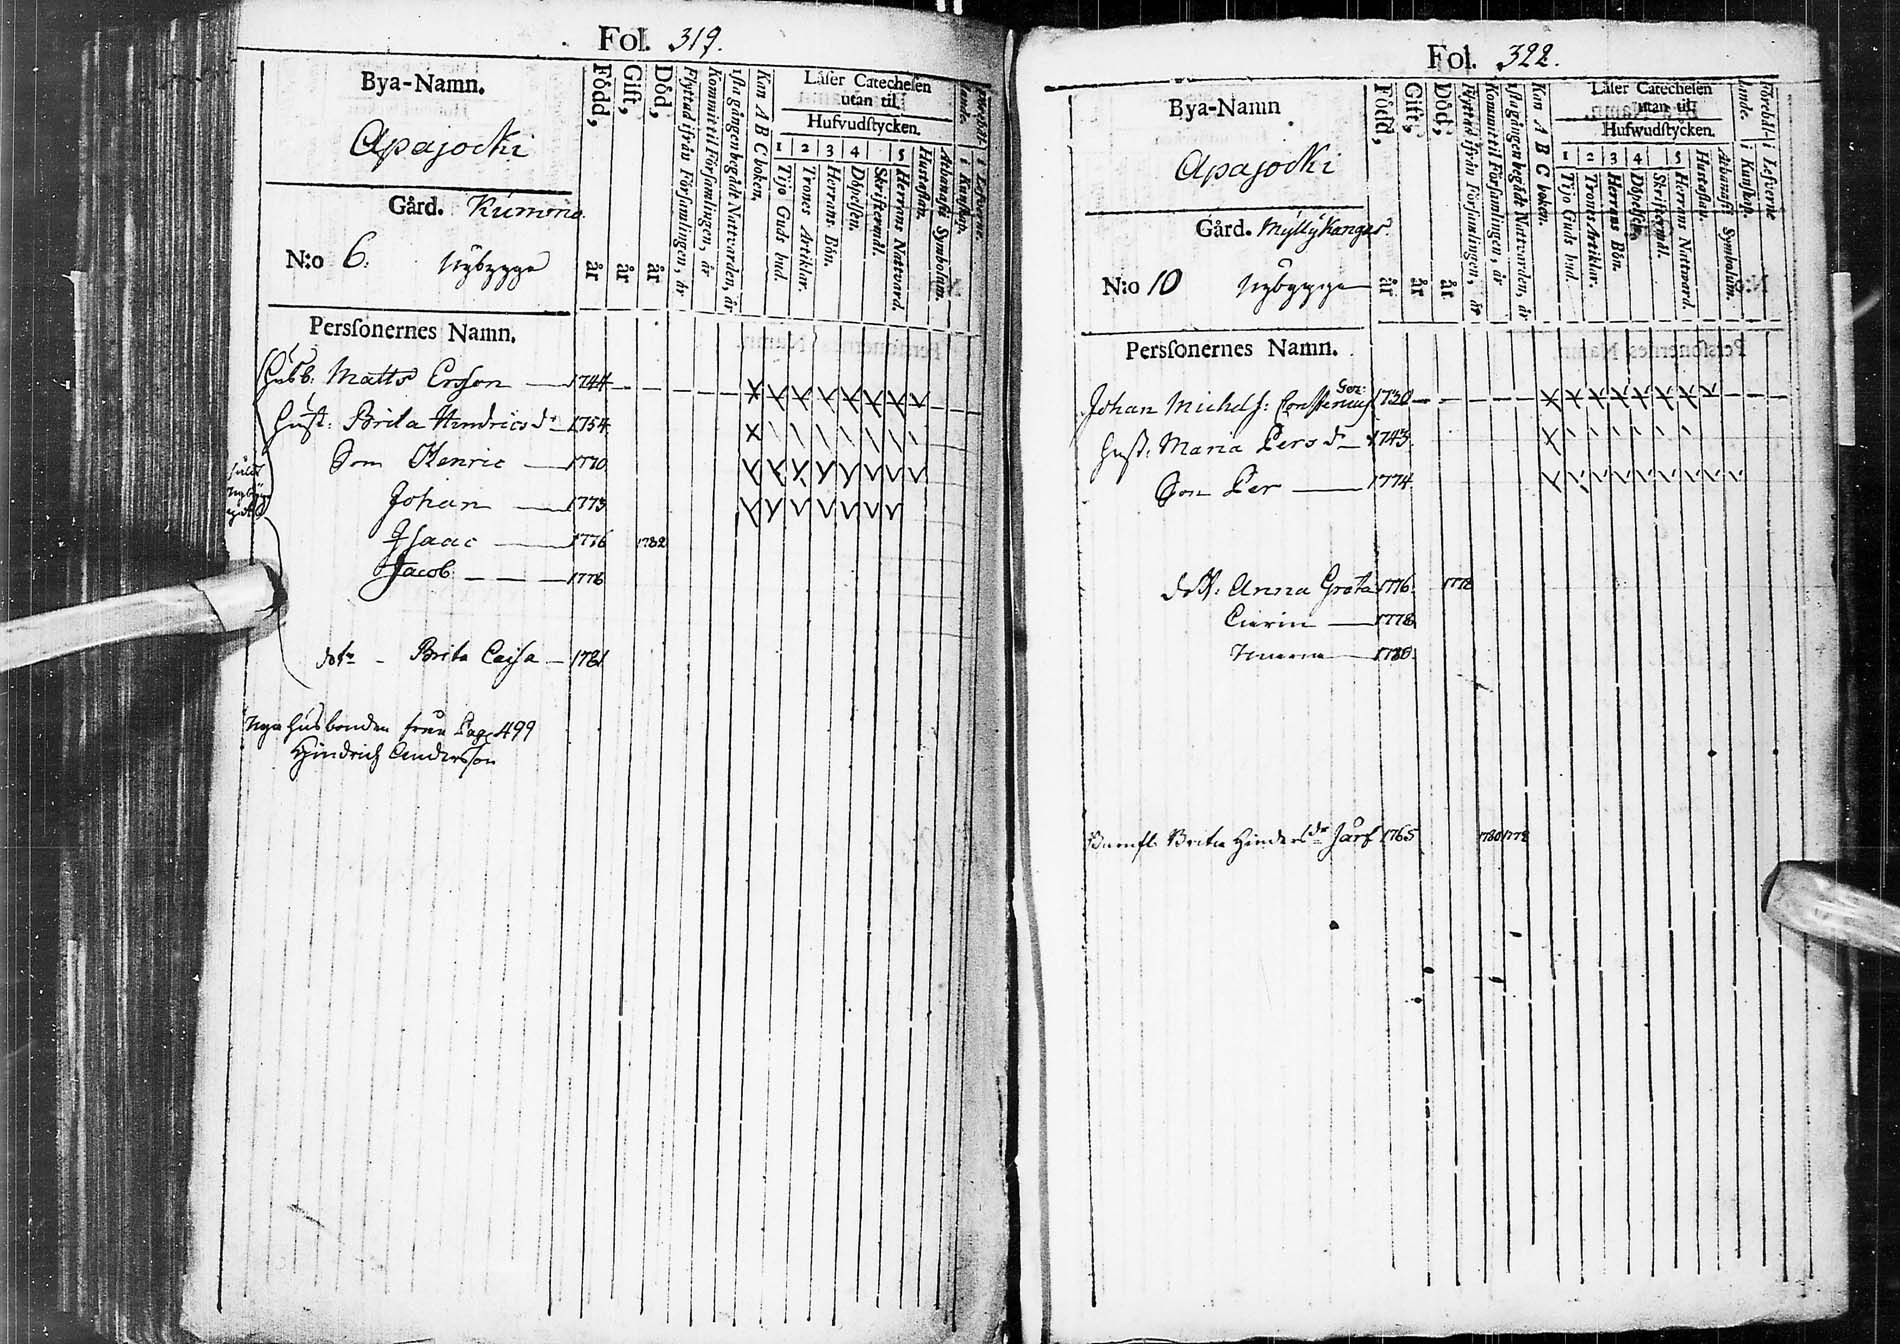 Fol. 319.
Bya-Namn.
Apajocki
Gård. Kummo
N:o 6. Nybygge
Persſonernes Namn.
Född, år
Gift, år
Död, år
Flyttad ifrån Förſamlingen, år
Kommit til Förſamlingen, år
Iſta gången begådt Nattvarden, år
Kan A B C boken.
Låſer Catecheſen
utan til.
Hufvudſtycken.
1 2 3 4 5
Tijo Guds bud.
Trones Artiklar.
Herrans Bön.
Döpelſen.
Skriftermål.
Herrans Nattvard.
Huſtaflan.
Athanaſii Symbolum.
Husb: Matts Ersson 1744
Hust: Brita Hindrics dr 1754
Son Henric 1770
Johan 1773
Isaac 1776 1782
Jacob 1778
dotr Brita Cajsa 1781
Nya husbonden från Pag 499
Hindrich Andersson
Fol. 322.
Bya-Namn
Apajocki
Gård. Myllykangas
N:o 10 Nybygge
Persſonernes Namn.
Född, år
Gift, år
Död, år
Flyttad ifrån Förſamlingen, år
Kommit til Förſamlingen, år
Iſta gången begådt Nattvarden, år
Kan A B C boken.
Låſer Catecheſen
utan til.
Hufwudſtycken.
1 2 3 4 5
Tijo Guds bud.
Trones Artiklar.
Herrans Bön.
Döpelſen.
Skriftermål.
Herrans Nattvard.
Huſtaflan.
Athanaſii Symbolum.
i Kunſkap.
i Lefverne
Johan Michels: 1730
Hust: Maria Pers dr 1743
Son Per 1774
dott: Anna Greta 1776 1778
Carin 1778
1780
Brita Hinders dr 1765 1780 1778